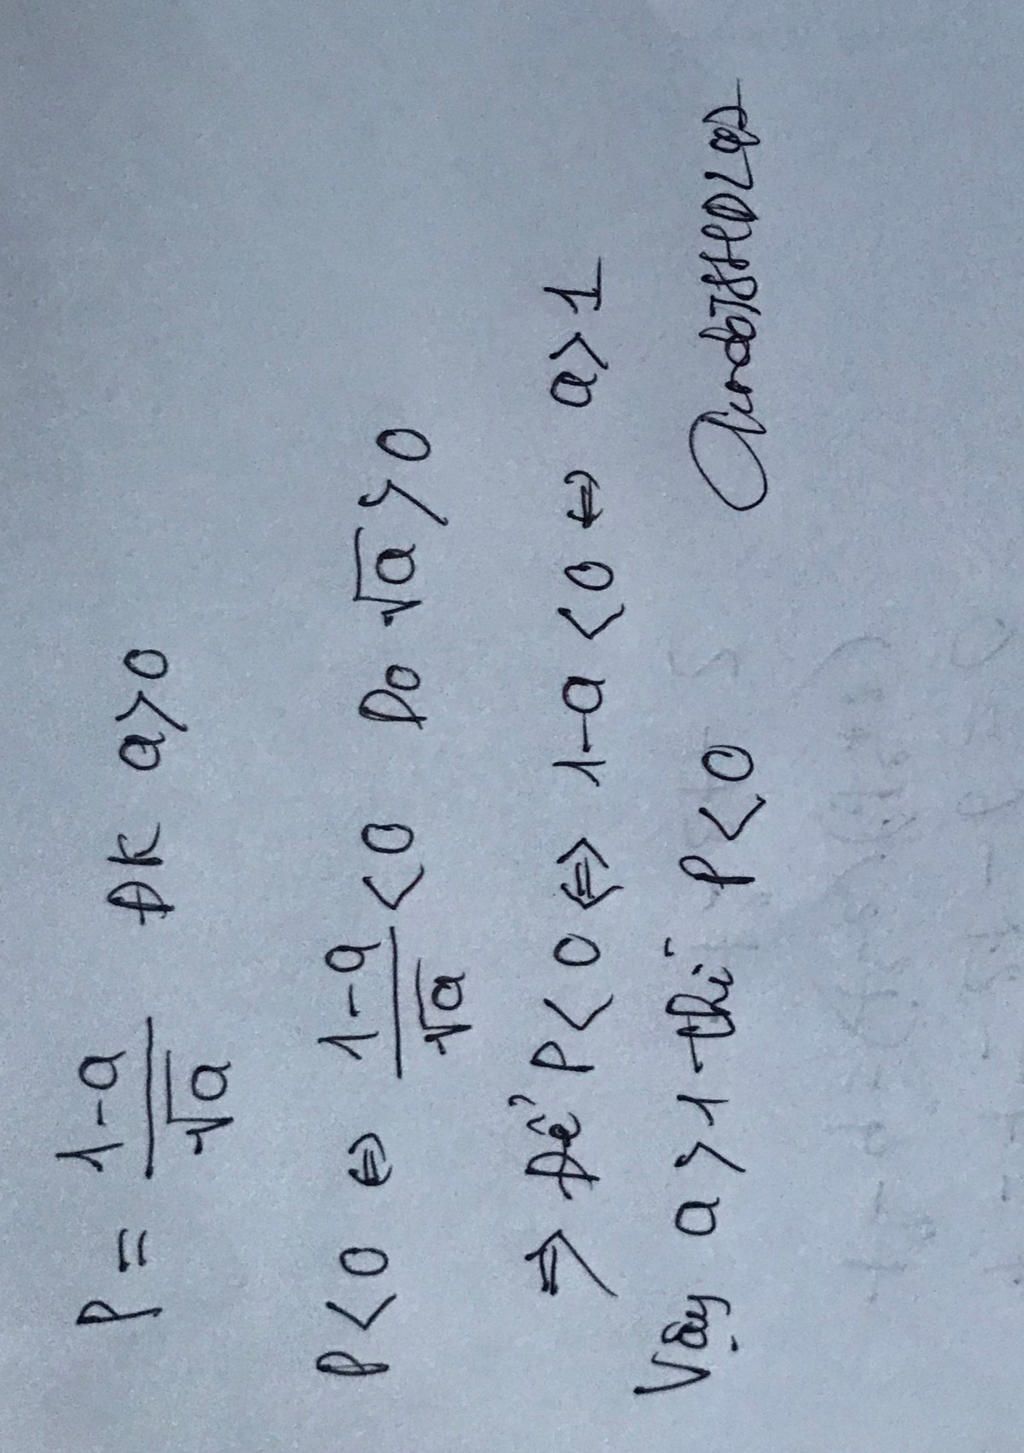 P = \frac{1-a}{\sqrt{a}} ĐK a>0
P<0 ⇔ \frac{1-a}{\sqrt{a}} <0 Do \sqrt{a} > 0
⇒ Để P<0 ⇔ 1-a<0 ⇔ a>1
Vậy a>1 thì P<0